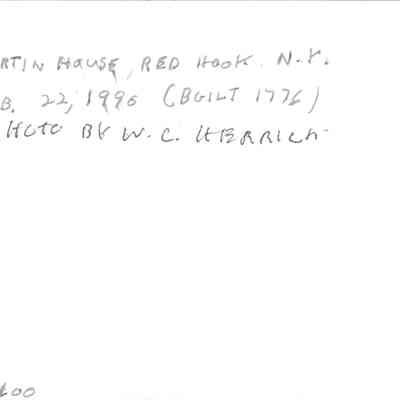 RTIN HOUSE, RED HOOK. N.Y.
B. 22, 1996 (BUILT 1776)
HOTO BY W. C. HERRICK